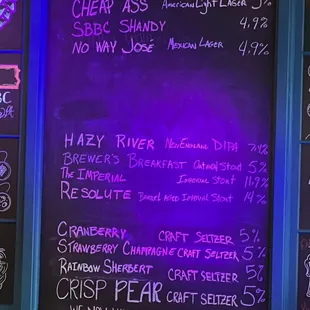 CHEAP ASS American Light Lager 5%
SBBC SHANDY 4.9%
NO WAY JOSÉ Mexican Lager 4.9%
HAZY RIVER New England DIPA
BREWER'S BREAKFAST Oatmeal Stout 5%
THE IMPERIAL Imperial Stout
RESOLUTE Barrel Aged Imperial Stout 14%
CRANBERRY CRAFT SELTZER 5%
STRAWBERRY CHAMPAGNE CRAFT SELTZER 5%
RAINBOW SHERBERT CRAFT SELTZER 5%
CRISP PEAR CRAFT SELTZER 5%